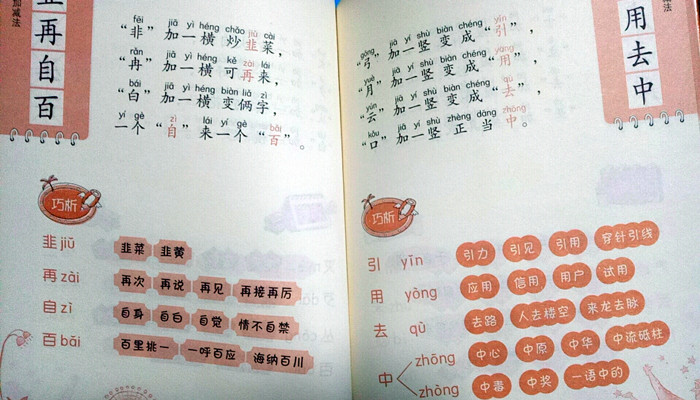 加减法
再
自
百
fēi jiā yì héng chǎo jiǔ cài
“非”加一横炒韭菜，
rǎn jiā yì héng kě zài lái
“冉”加一横可再来，
bái jiā yì héng biàn liǎ zì
“白”加一横变俩字，
yí gè zì lái yí gè bǎi
一个“自”来一个“百”。
巧析
韭 jiǔ 韭菜 韭黄
再 zài 再次 再说 再见 再接再厉
自 zì 自身 自白 自觉 情不自禁
百 bǎi 百里挑一 一呼百应 海纳百川
减法
用
去
中
gōng jiā yí shù biàn chéng yǐn
“弓”加一竖变成“引”，
yuè jiā yí shù biàn chéng yòng
“月”加一竖变成“用”，
yún jiā yí shù biàn chéng qù
“云”加一竖变成“去”，
kǒu jiā yí shù zhèng dāng zhōng
“口”加一竖正当中。
巧析
引 yǐn 引力 引见 引用 穿针引线
用 yòng 应用 信用 用户 试用
去 qù 去路 人去楼空 来龙去脉
中 zhōng 中心 中原 中华 中流砥柱
zhòng 中毒 中奖 一语中的